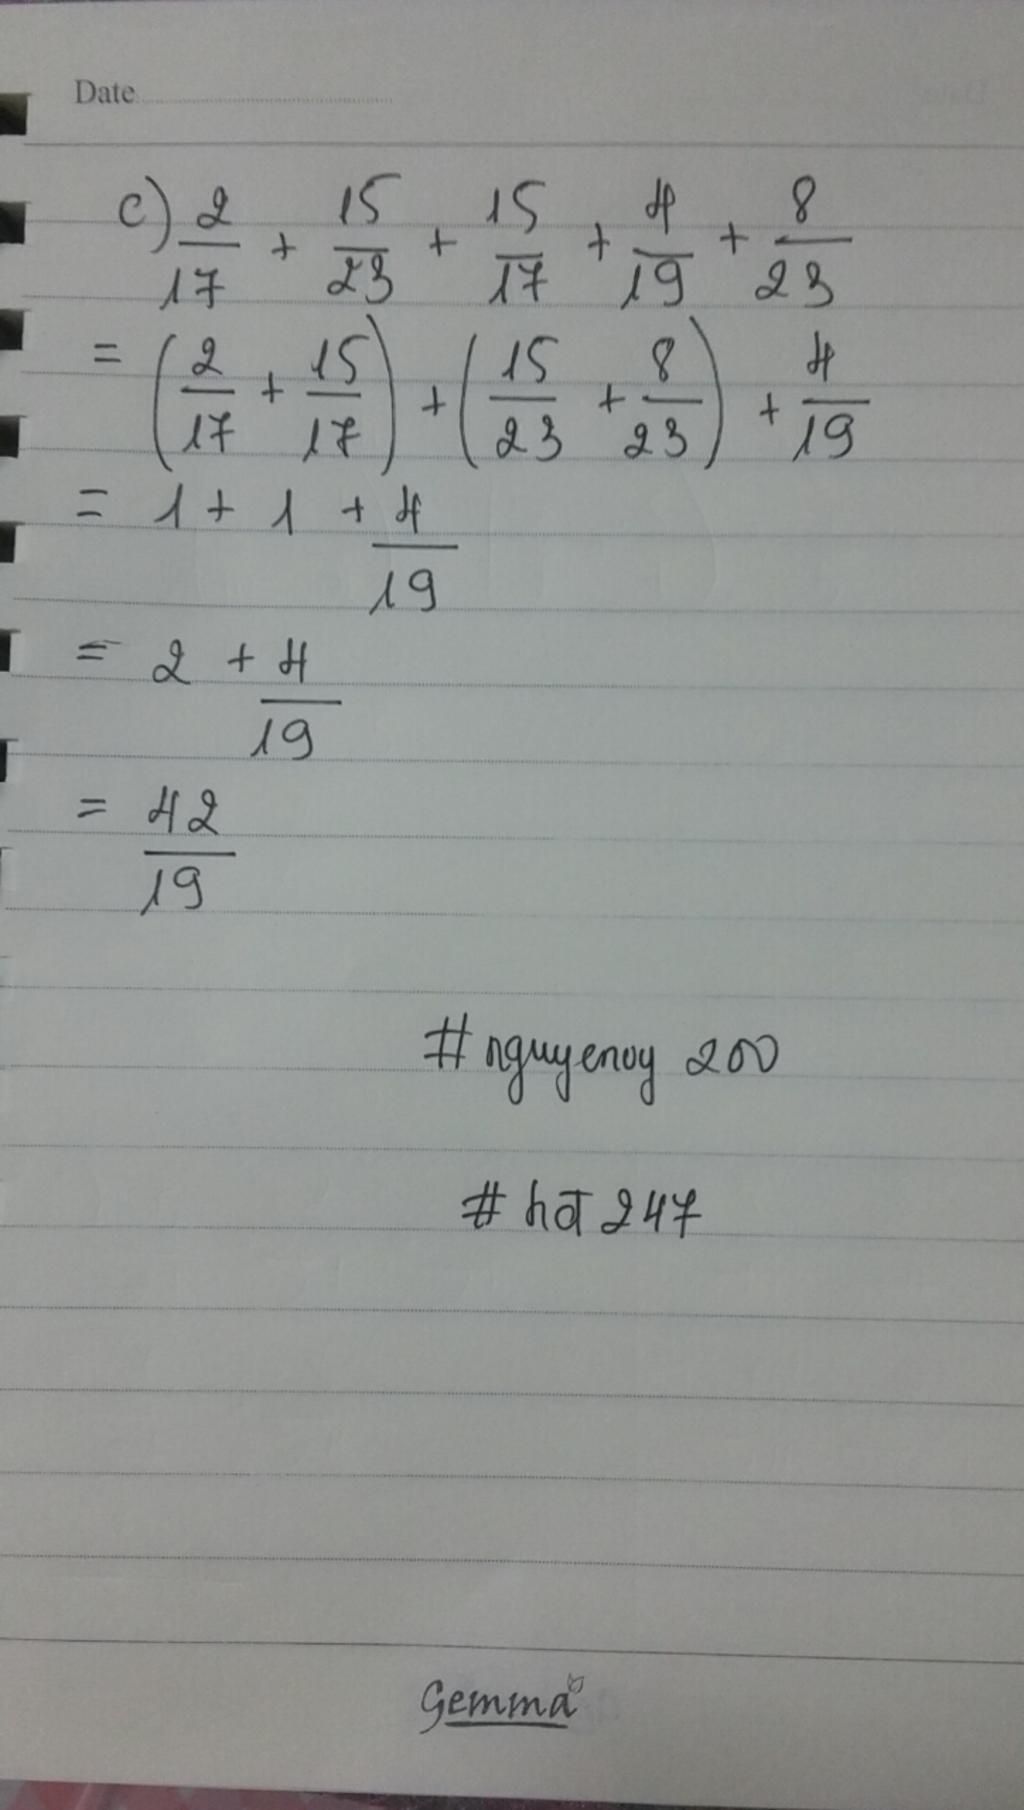 Date
c) 2/17 + 15/23 + 15/17 + 4/19 + 8/23
= (2/17 + 15/17) + (15/23 + 8/23) + 4/19
= 1 + 1 + 4/19
= 2 + 4/19
= 42/19
#nguyenvy 200
# hot 247
Gemma